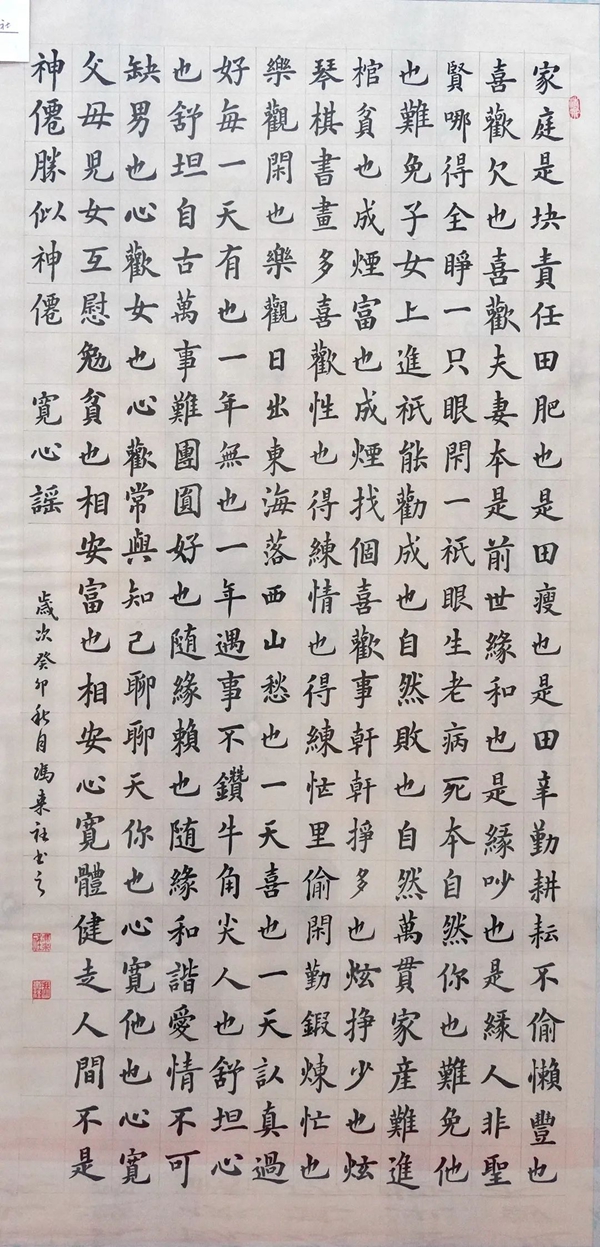 家庭是块責任田肥也是田瘦也是田辛勤耕耘不偷懶豐也
喜歡欠也喜歡夫妻本是前世緣和也是緣吵也是緣人非聖
賢哪得全睜一只眼閑一祇眼生老病死本自然你也難免他
也難免子女上進祇能勸成也自然敗也自然萬貫家産難進
棺貧也成煙富也成煙找個喜歡事軒軒掙多也炫掙少也炫
琴棋書畫多喜歡性也得練情也得練忙里偷閑勤鍜煉忙也
樂觀閑也樂觀日出東海落西山愁也一天喜也一天訫真過
好每一天有也一年無也一年遇事不鑽牛角尖人也舒坦心
也舒坦自古萬事難團圓好也随緣賴也随緣和諧愛情不可
缺男也心歡女也心歡常與知己聊聊天你也心寬他也心寬
父母児女互慰勉貧也相安富也相安心寬體健走人間不是
神僊勝似神僊 寬心謡
歲次癸卯秋月馮来社书之
社